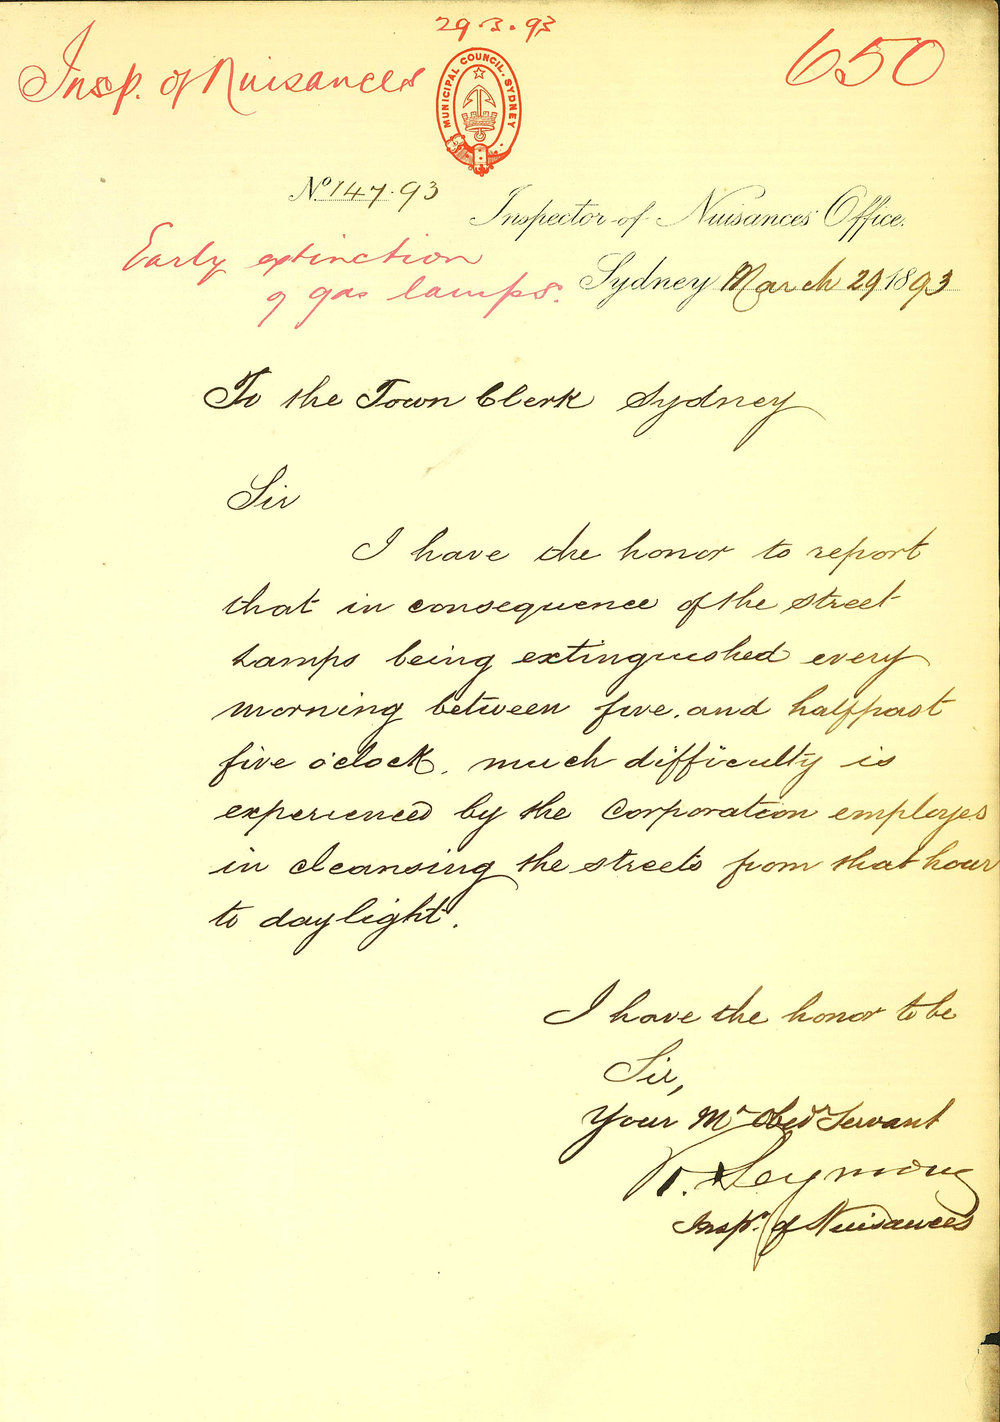 29.3.93
Insp. of Nuisances
650
MUNICIPAL COUNCIL. SYDNEY
No 147.93
Inspector of Nuisances' Office.
Early extinction
of gas lamps.
Sydney March 29 1893
To the Town Clerk Sydney
Sir
I have the honor to report
that in consequence of the street
Lamps being extinguished every
morning between five. and halfpast
five o'clock. much difficulty is
experienced by the Corporation employes
in cleansing the streets from that hour
to daylight.
I have the honor to be
Sir,
Your Mt Obedt Servant
Seymour
Inspr. of Nuisances